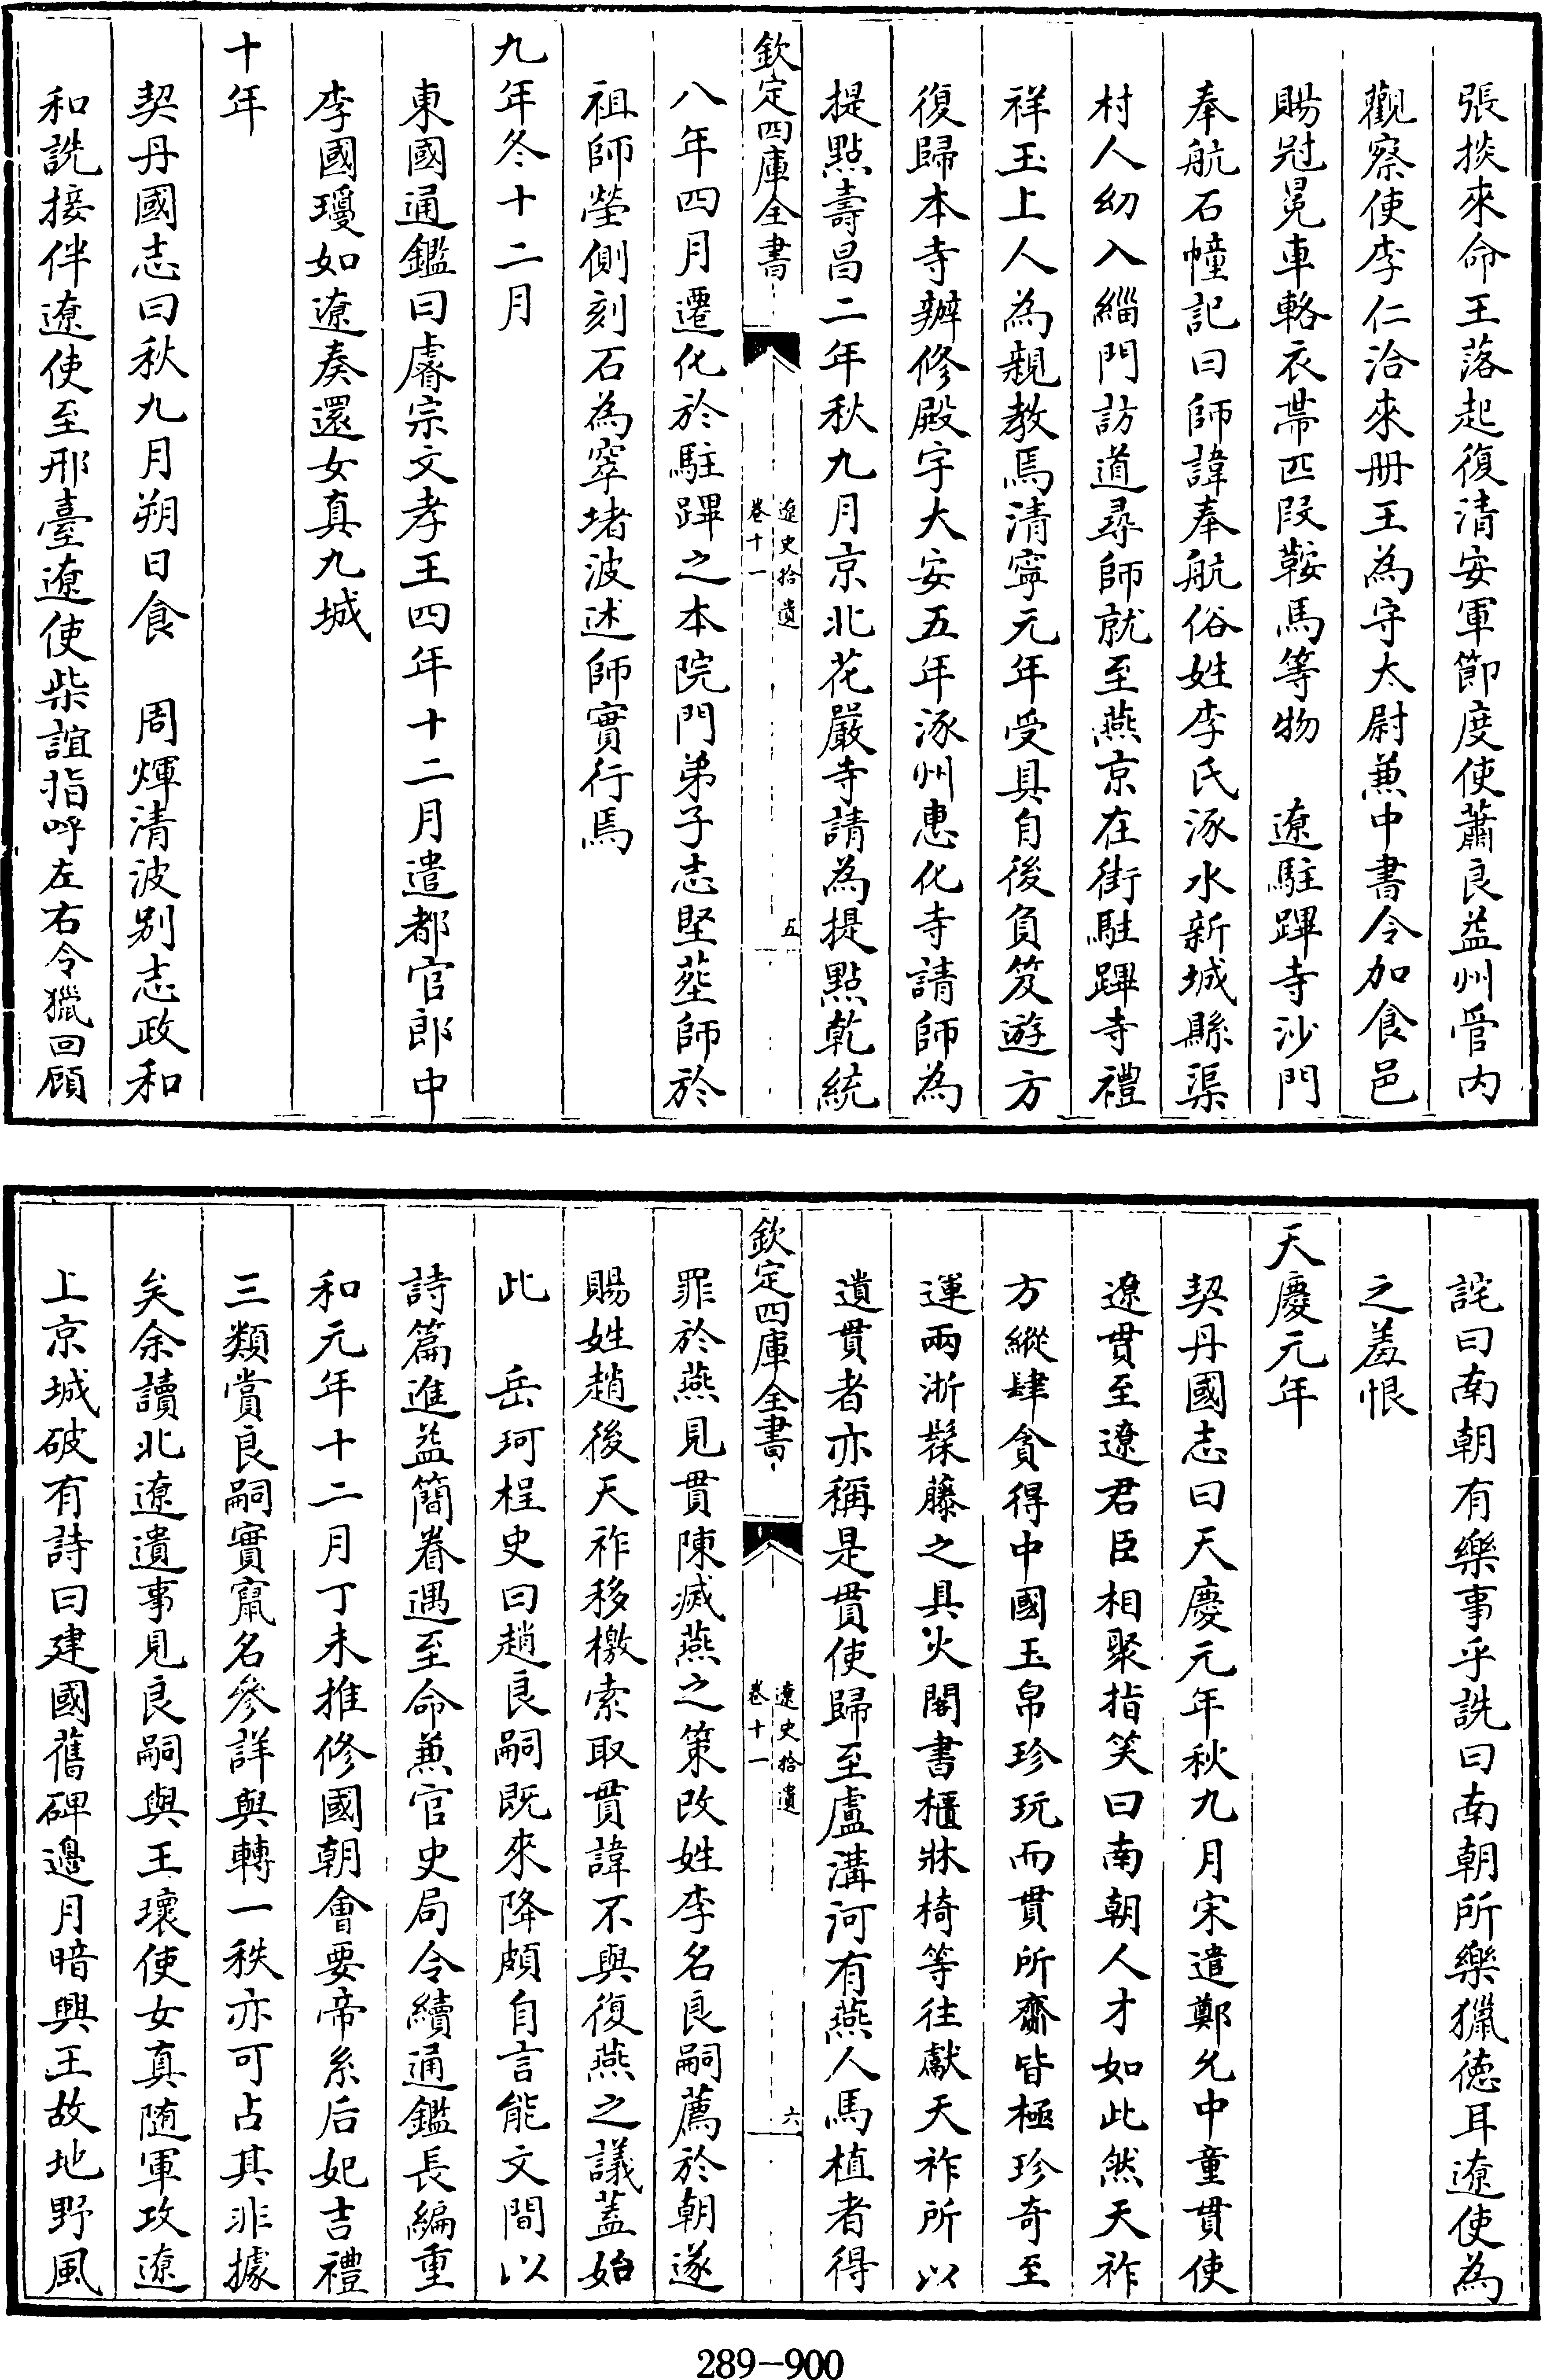 張掞來命王落起復清安軍節度使蕭良益州管内
觀察使李仁洽來册王為守太尉兼中書令加食邑
賜冠冕車輅衣帯匹段鞍馬等物　遼駐蹕寺沙門
奉航石幢記曰師諱奉航俗姓李氏涿水新城縣渠
村人幼入緇門訪道尋師就至燕京在街駐蹕寺禮
祥玉上人為親教焉清寧元年受具自後負笈遊方
復歸本寺辦修殿宇大安五年涿州惠化寺請師為
提點壽昌二年秋九月京北花嚴寺請為提點乾統
欽定四庫全書
遼史拾遺
卷十一
五
八年四月遷化於駐蹕之本院門弟子志堅塟師於
祖師塋側刻石為窣堵波述師實行焉
九年冬十二月
東國通鑑曰睿宗文孝王四年十二月遣都官郎中
李國瓊如遼奏還女真九城
十年
契丹國志曰秋九月朔日食　周煇清波别志政和
和詵接伴遼使至邢臺遼使柴誼指呼左右令獵回顧
詫曰南朝有樂事乎詵曰南朝所樂獵徳耳遼使為
之羞恨
天慶元年
契丹國志曰天慶元年秋九月宋遣鄭允中童貫使
遼貫至遼君臣相聚指笑曰南朝人才如此然天祚
方縱肆貪得中國玉帛珍玩而貫所齎皆極珍奇至
運兩浙髹藤之具火閣書櫃牀椅等往獻天祚所以
遺貫者亦稱是貫使歸至盧溝河有燕人馬植者得
欽定四庫全書
遼史拾遺
卷十一
六
罪於燕見貫陳滅燕之策改姓李名良嗣薦於朝遂
賜姓趙後天祚移檄索取貫諱不與復燕之議蓋始
此　岳珂桯史曰趙良嗣既來降頗自言能文間以
詩篇進益簡眷遇至命兼官史局令續通鑑長編重
和元年十二月丁未推修國朝會要帝系后妃吉禮
三類賞良嗣實竄名參詳與轉一秩亦可占其非據
矣余讀北遼遺事見良嗣與王瓌使女真随軍攻遼
上京城破有詩曰建國舊碑邊月暗興王故地野風
289-900